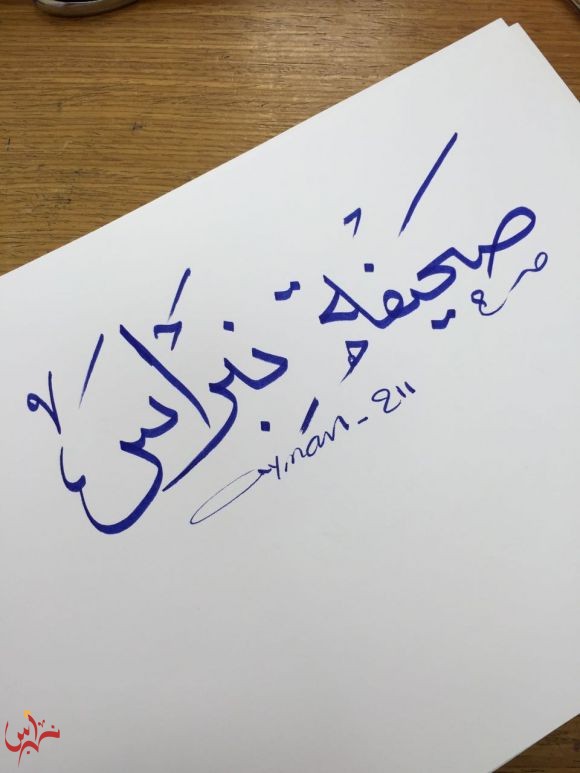 صحيفة نبراس
ayman_all
نبراس